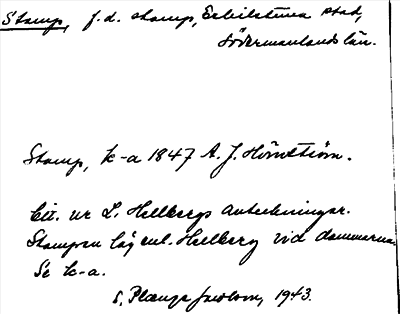 Stamp, f.d. stamp, Eskilstuna stad,
Södermanlands län.
Stamp, k-a 1847 A. J.
Cit. ur L. Hellbergs anteckningar.
Stampen låg enl. Hellberg vid dammarna.
Se k-a.
S. 1943.